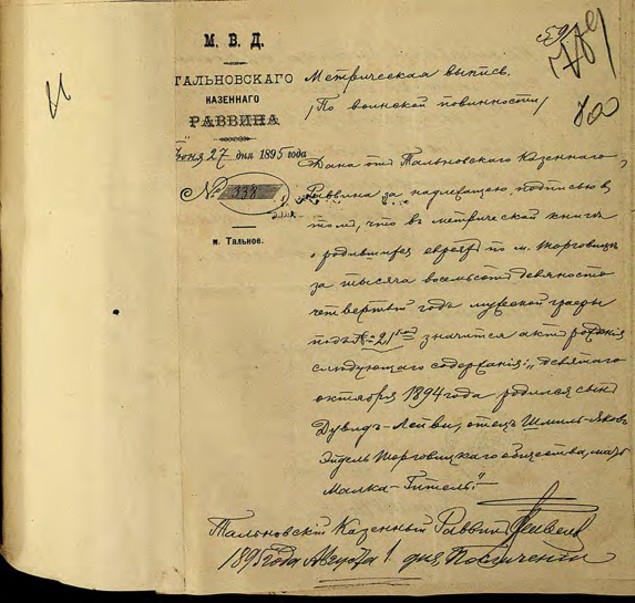 М. В. Д.
ТАЛЬНОВСКАГО
КАЗЕННАГО
РАВВИНА
27 дня 1895 года
№ 338
м. Тальное.
Метрическая выпись.
/По воинской повинности/
Дана отъ Тальновскаго Казеннаго
Раввина за надлежащею подписью въ
томъ, что въ метрической книгѣ
о родившихся евреяхъ по м. Торговицѣ
за тысяча восемьсотъ девяносто
четвертый годъ мужской графы
подъ № 21 значится актъ рожденія
слѣдующаго содержанія: „девятаго
октября 1894 года родился сынъ
Дувидъ-Лейви, отецъ Шмиль-Яковъ
Эйдель Торговицкаго общества, мать
Малка-Гитель"
Тальновскій Казенный Раввинъ
1895 года Августа 1 дня